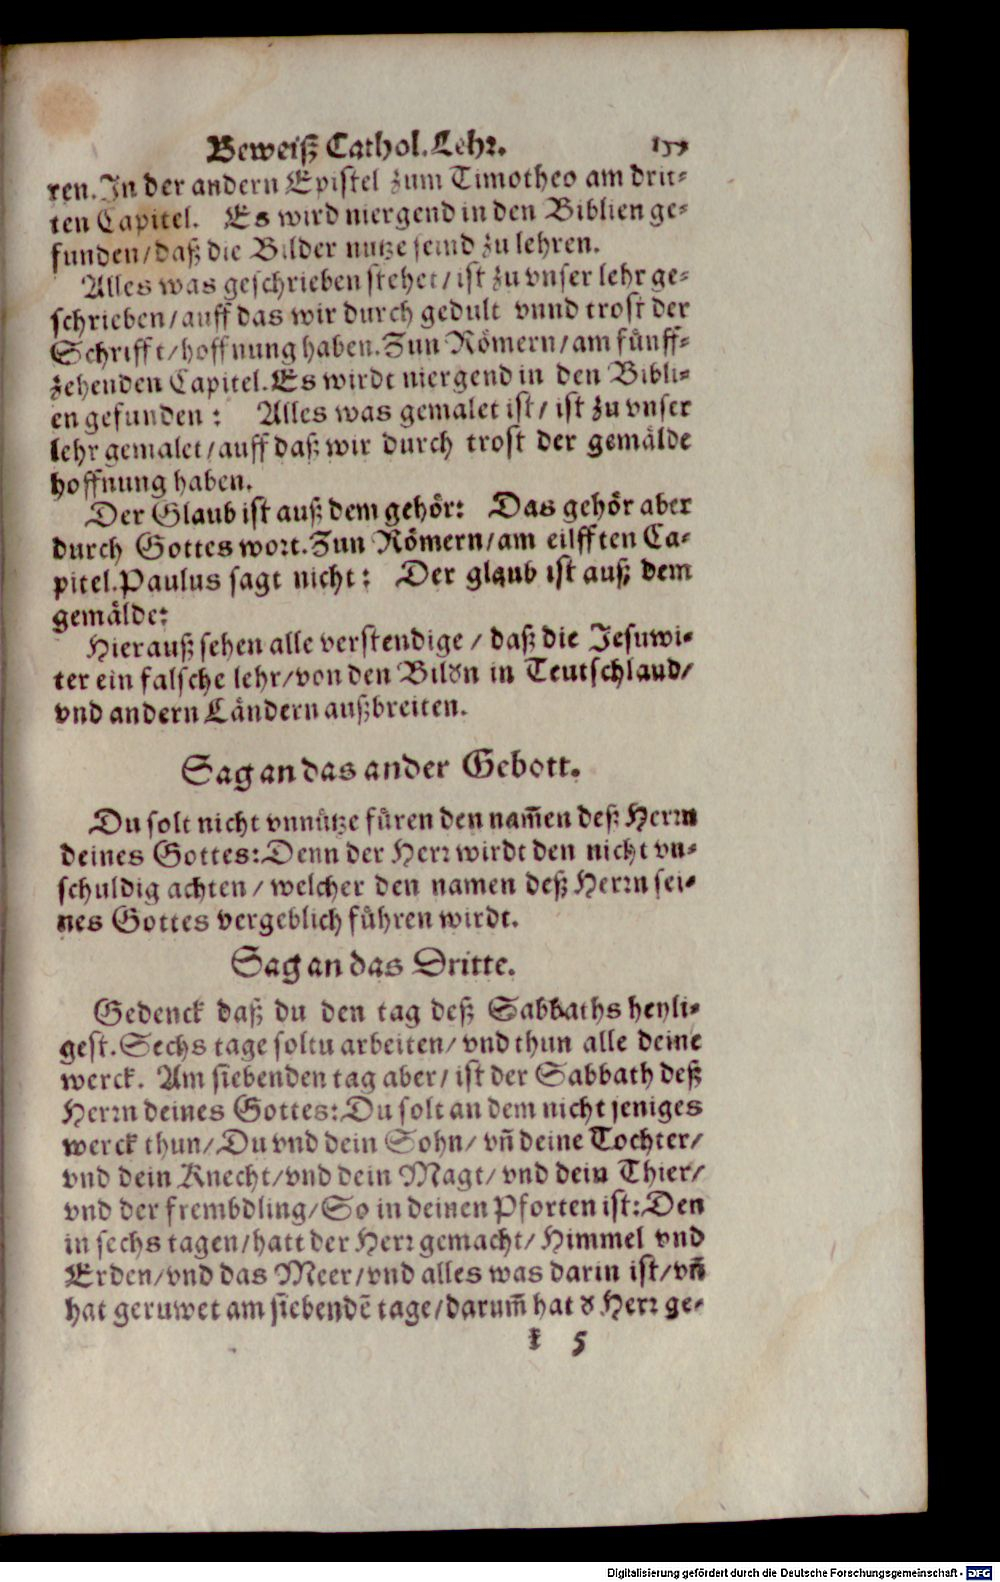 Beweiß Cathol. Lehr.
ren. In der andern Epistel zum Timotheo am drit-
ten Capitel. Es wird niergend in den Biblien ge-
funden/ daß die Bilder nutze seind zu lehren.
Alles was geschrieben stehet/ ist zu vnser lehr ge-
schrieben/ auff das wir durch gedult vnnd trost der
Schrifft/ hoffnung haben. Zun Römern/ am fünff-
zehenden Capitel. Es wirdt niergend in den Bibli-
en gefunden: Alles was gemalet ist/ ist zu vnser
lehr gemalet/ auff daß wir durch trost der gemälde
hoffnung haben.
Der Glaub ist auß dem gehör: Das gehör aber
durch Gottes wort. Zun Römern/ am eilfften Ca-
pitel. Paulus sagt nicht: Der glaub ist auß dem
gemälde:
Hierauß sehen alle verstendige/ daß die Jesuwi-
ter ein falsche lehr/ von den Bildn in Teutschland/
vnd andern Ländern außbreiten.
Sag an das ander Gebott.
Du solt nicht vnnütze füren den nam̃en deß Herrn
deines Gottes: Denn der Herr wirdt den nicht vn-
schuldig achten/ welcher den namen deß Herrn sei-
nes Gottes vergeblich führen wirdt.
Sag an das Dritte.
Gedenck daß du den tag deß Sabbaths heyli-
gest. Sechs tage soltu arbeiten/ vnd thun alle deine
werck. Am siebenden tag aber/ ist der Sabbath deß
Herrn deines Gottes: Du solt an dem nicht jeniges
werck thun/ Du vnd dein Sohn/ vñ deine Tochter/
vnd dein Knecht/ vnd dein Magt/ vnd dein Thier/
vnd der frembdling/ So in deinen Pforten ist: Den
in sechs tagen/ hatt der Herr gemacht/ Himmel vnd
Erden/ vnd das Meer/ vnd alles was darin ist/ vñ
hat geruwet am siebendẽ tage/ darum̃ hat d Herr ge-
X 5
Digitalisierung gefördert durch die Deutsche Forschungsgemeinschaft - DFG